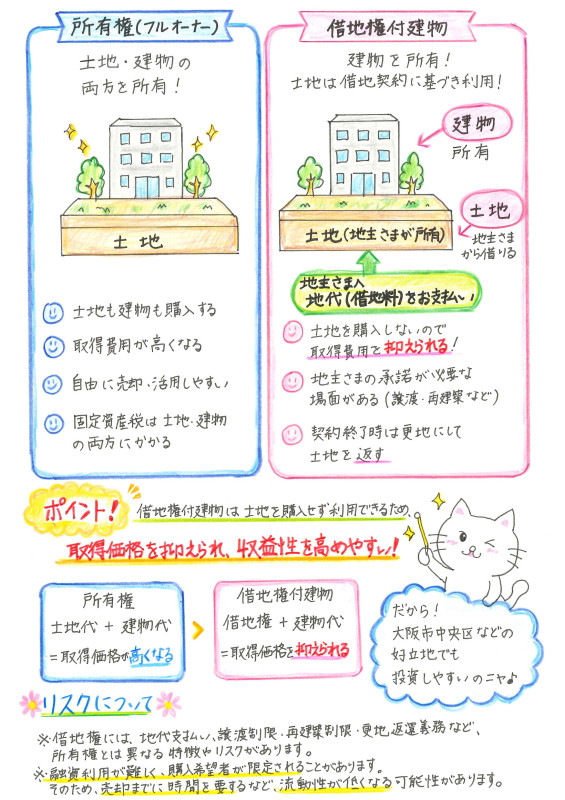 所有権(フルオーナー)
土地・建物の
両方を所有!
土地
土地も建物も購入する
取得費用が高くなる
自由に売却・活用しやすい
固定資産税は土地・建物
の両方にかかる
借地権付建物
建物を所有!
土地は借地契約に基づき利用!
建物
所有
土地
地主さま
から借りる
土地(地主さまが所有)
地主さまへ
地代(借地料)をお支払い
土地を購入しないので
取得費用を抑えられる!
地主さまの承諾が必要な
場面がある(譲渡・再建築など)
契約終了時は更地にして
土地を返す
ポイント!
借地権付建物は土地を購入せず利用できるため、
取得価格を抑えられ、収益性を高めやすい!
所有権
土地代+建物代
=取得価格が高くなる
>
借地権付建物
借地権+建物代
=取得価格を抑えられる
だから!
大阪市中央区などの
好立地でも
投資しやすいのニャ♪
リスクについて
※借地権には、地代支払い、譲渡制限・再建築制限・更地返還義務など、
所有権とは異なる特徴やリスクがあります。
※融資利用が難しく、購入希望者が限定されることがあります。
そのため、売却までに時間を要するなど、流動性が低くなる可能性があります。